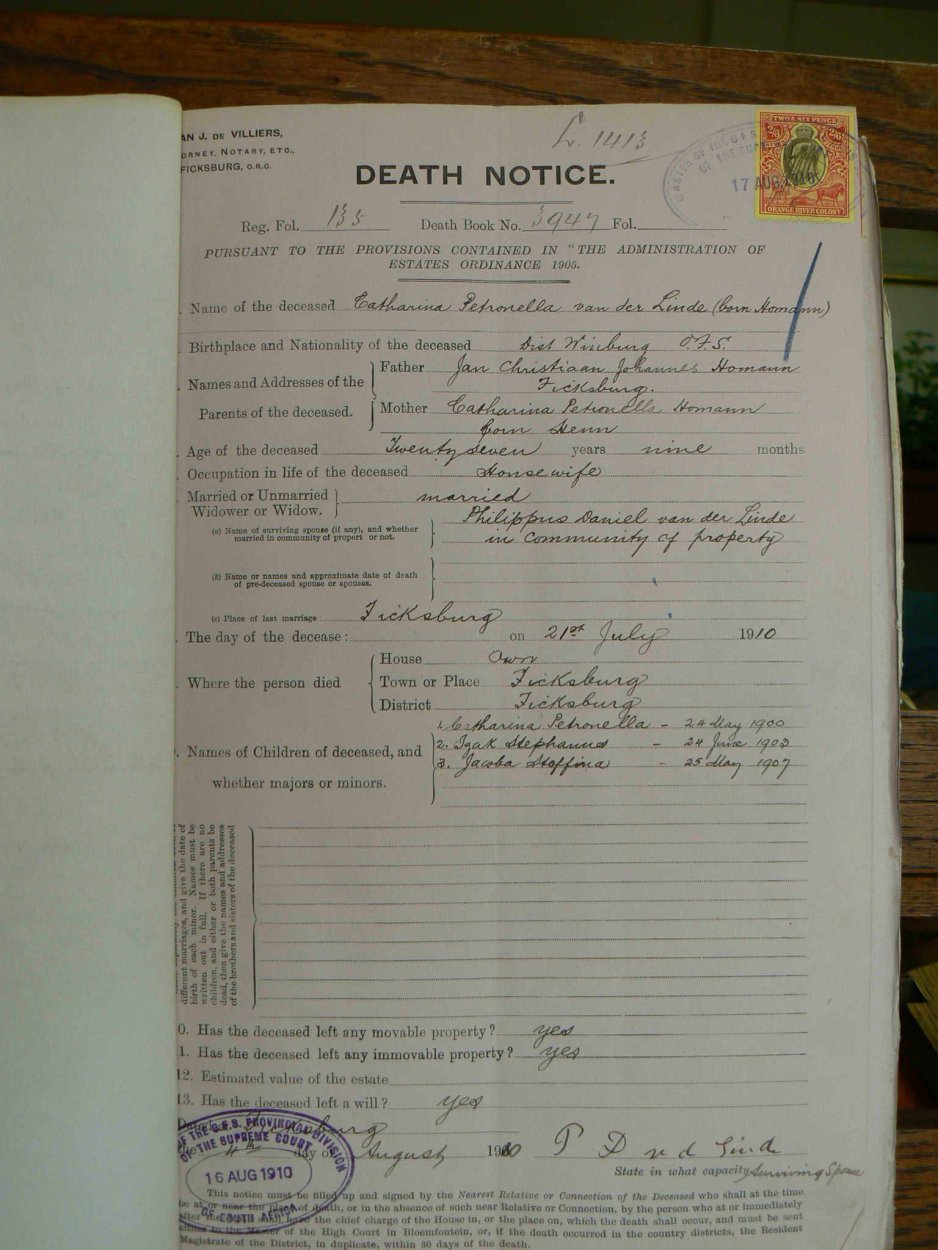 AN J. DE VILLIERS,
ORNEY, NOTARY, ETC.,
FICKSBURG, O.R.C.
L. 1413
17 AUG 1910
TWO & SIX PENCE
2/6 2/6
ORANGE RIVER COLONY
DEATH NOTICE.
Reg. Fol. 135 Death Book No. 3947 Fol.
PURSUANT TO THE PROVISIONS CONTAINED IN "THE ADMINISTRATION OF
ESTATES ORDINANCE 1905.
Name of the deceased Catharina Petronella van der Linde (born Homann)
Birthplace and Nationality of the deceased Dist Winburg O.F.S.
Names and Addresses of the Parents of the deceased.
Father Jan Christiaan Johannes Homann
Ficksburg.
Mother Catharina Petronella Homann
born
Age of the deceased Twentyseven years nine months
Occupation in life of the deceased Housewife
Married or Unmarried married
Widower or Widow.
(a) Name of surviving spouse (if any), and whether
married in community of propert or not.
Philippus Daniel van der Linde
in community of property
(b) Name or names and approximate date of death
of pre-deceased spouse or spouses.
(c) Place of last marriage Ficksburg
The day of the decease: on 21st July 1910
Where the person died
House Own
Town or Place Ficksburg
District Ficksburg
Names of Children of deceased, and
whether majors or minors.
1. Catharina Petronella - 24 May 1900
2. Izak Stephanus - 24 June 1903
3. Jacoba Stoffina - 25 May 1907
different marriages, and give the date of
birth of each minor. Names must be
written out in full. If there are no
children, and either or both parents be
dead, then give the names and addresses
of the brothers and sisters of the deceased
0. Has the deceased left any movable property? yes
1. Has the deceased left any immovable property? yes
12. Estimated value of the estate
13. Has the deceased left a will? yes
Ficksburg
4th day of August 1910 P D v d Lind
State in what capacity Surviving Spouse
OF THE O.F.S. PROVINCIAL DIVISION
OF THE SUPREME COURT
16 AUG 1910
OF SOUTH AFRICA
This notice must be filled up and signed by the Nearest Relative or Connection of the Deceased who shall at the time
be at or near the place of death, or in the absence of such near Relative or Connection, by the person who at or immediately
after the have the chief charge of the House in, or the place on, which the death shall occur, and must be sent
either to the Master of the High Court in Bloemfontein, or, if the death occurred in the country districts, the Resident
Magistrate of the District, in duplicate, within 30 days of the death.